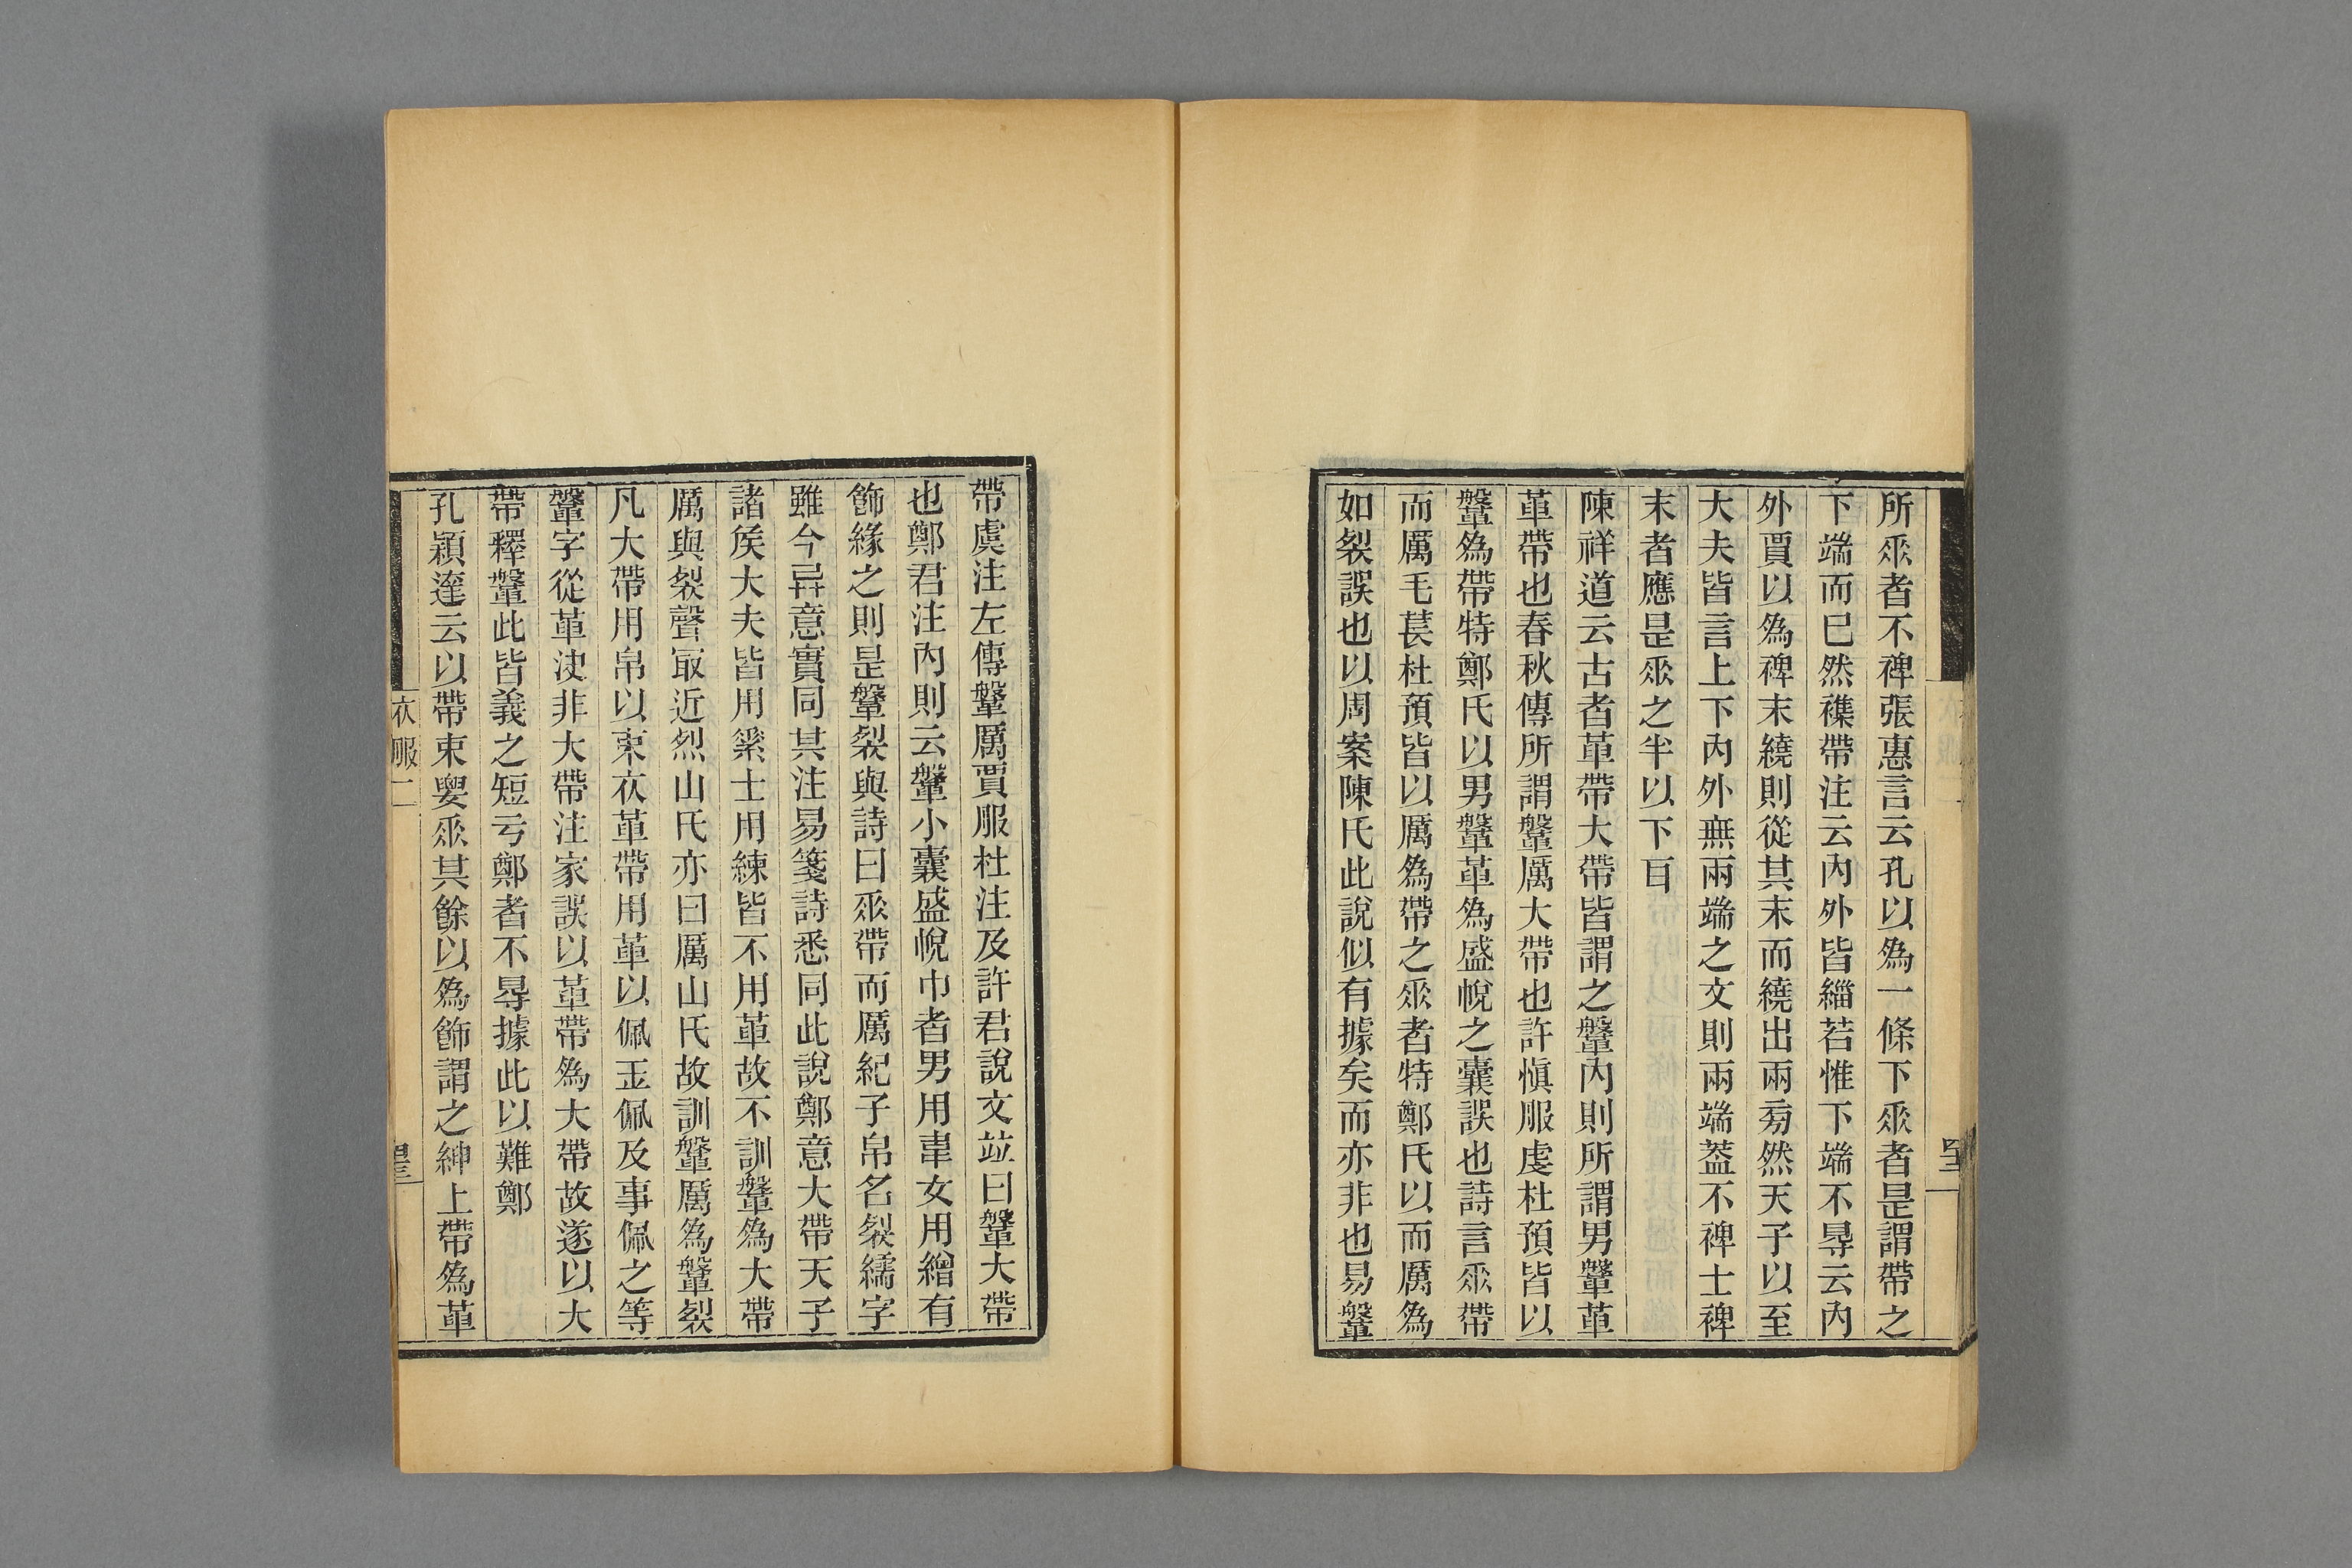 所𠂹者不裨張惠言云孔以爲一條下𠂹者是謂帶之
下端而巳然襍帶注云內外皆緇若惟下端不㝵云內
外賈以爲裨末繞則從其末而繞出兩旁然天子以至
大夫皆言上下內外無兩端之文則兩端葢不裨士裨
末者應是𠂹之半以下耳
陳祥道云古者革帶大帶皆謂之鞶內則所謂男鞶革
革帶也春秋傳所謂鞶厲大帶也許愼服虔杜預皆以
鞶爲帶特鄭氏以男鞶革爲盛帨之囊誤也詩言𠂹帶
而厲毛萇杜預皆以厲爲帶之𠂹者特鄭氏以而厲爲
如裂誤也以周案陳氏此說似有據矣而亦非也易鞶
帶虞注左傳鞶厲賈服杜注及許君說文竝曰鞶大帶
也鄭君注內則云鞶小囊盛帨巾者男用韋女用繒有
飾緣之則是鞶裂與詩曰𠂹帶而厲紀子帛名裂繻字
雖今异意實同其注易箋詩悉同此說鄭意大帶天子
諸矦大夫皆用素士用練皆不用革故不訓鞶爲大帶
厲與裂聲冣近烈山氏亦曰厲山氏故訓鞶厲爲鞶裂
凡大帶用帛以束衣革帶用革以佩玉佩及事佩之等
鞶字從革決非大帶注家誤以革帶爲大帶故遂以大
帶釋鞶此皆義之短亏鄭者不㝵據此以難鄭
孔穎達云以帶束要𠂹其餘以爲飾謂之紳上帶爲革
衣服二